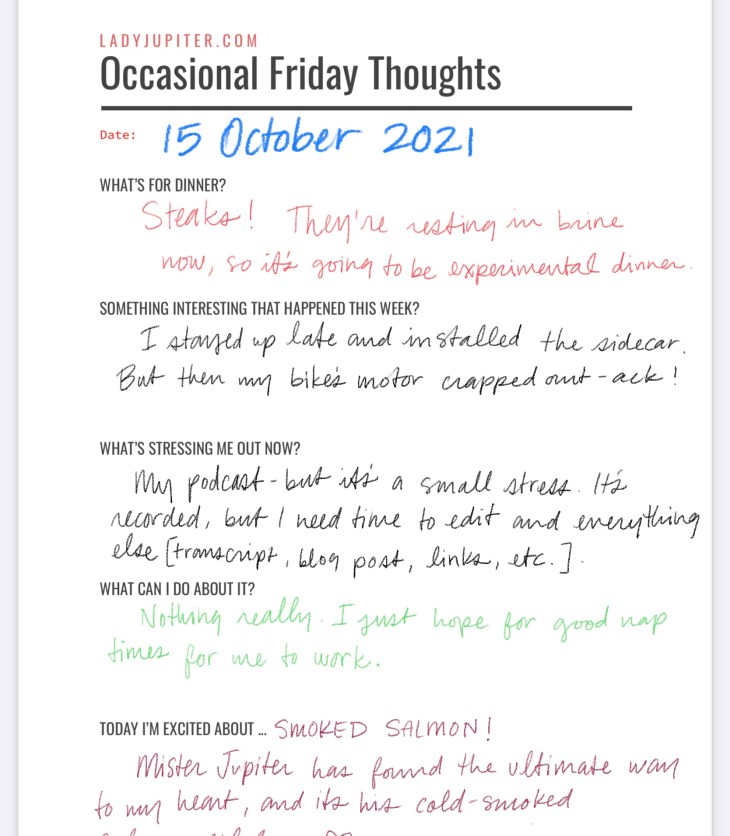 LADYJUPITER.COM
Occasional Friday Thoughts
Date: 15 October 2021
WHAT'S FOR DINNER?
Steaks! They're resting in brine
now, so it's going to be experimental dinner.
SOMETHING INTERESTING THAT HAPPENED THIS WEEK?
I stayed up late and installed the sidecar.
But then my bike's motor crapped out - ack!
WHAT'S STRESSING ME OUT NOW?
My podcast - but it's a small stress. It's
recorded, but I need time to edit and everything
else [transcript, blog post, links, etc.].
WHAT CAN I DO ABOUT IT?
Nothing really. I just hope for good nap
times for me to work.
TODAY I'M EXCITED ABOUT ... SMOKED SALMON!
Mister Jupiter has found the ultimate way
to my heart, and its his cold-smoked